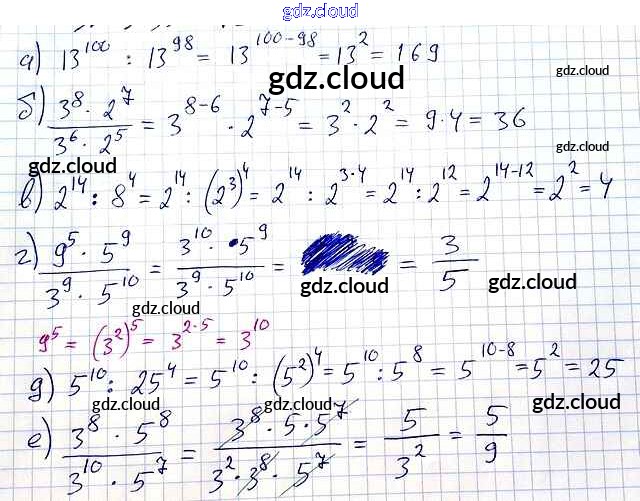 gdz.cloud
а) 13^100 : 13^98 = 13^(100-98) = 13^2 = 169
gdz.cloud
gdz.cloud
б) (3^8 · 2^7)/(3^6 · 2^5) = 3^(8-6) · 2^(7-5) = 3^2 · 2^2 = 9·4 = 36
gdz.cloud
gdz.cloud
в) 2^14 : 8^4 = 2^14 : (2^3)^4 = 2^14 : 2^(3·4) = 2^14 : 2^12 = 2^(14-12) = 2^2 = 4
gdz.cloud
г) (9^5 · 5^9)/(3^9 · 5^10) = (3^10 · 5^9)/(3^9 · 5^10) = = 3/5
gdz.cloud gdz.cloud
gdz.cloud
9^5 = (3^2)^5 = 3^(2·5) = 3^10
gdz.cloud
д) 5^10 : 25^4 = 5^10 : (5^2)^4 = 5^10 : 5^8 = 5^(10-8) = 5^2 = 25
gdz.cloud gdz.cloud gdz.cloud
е) (3^8 · 5^8)/(3^10 · 5^7) = (3^8 · 5 · 5^7)/(3^2 · 3^8 · 5^7) = 5/3^2 = 5/9
gdz.cloud